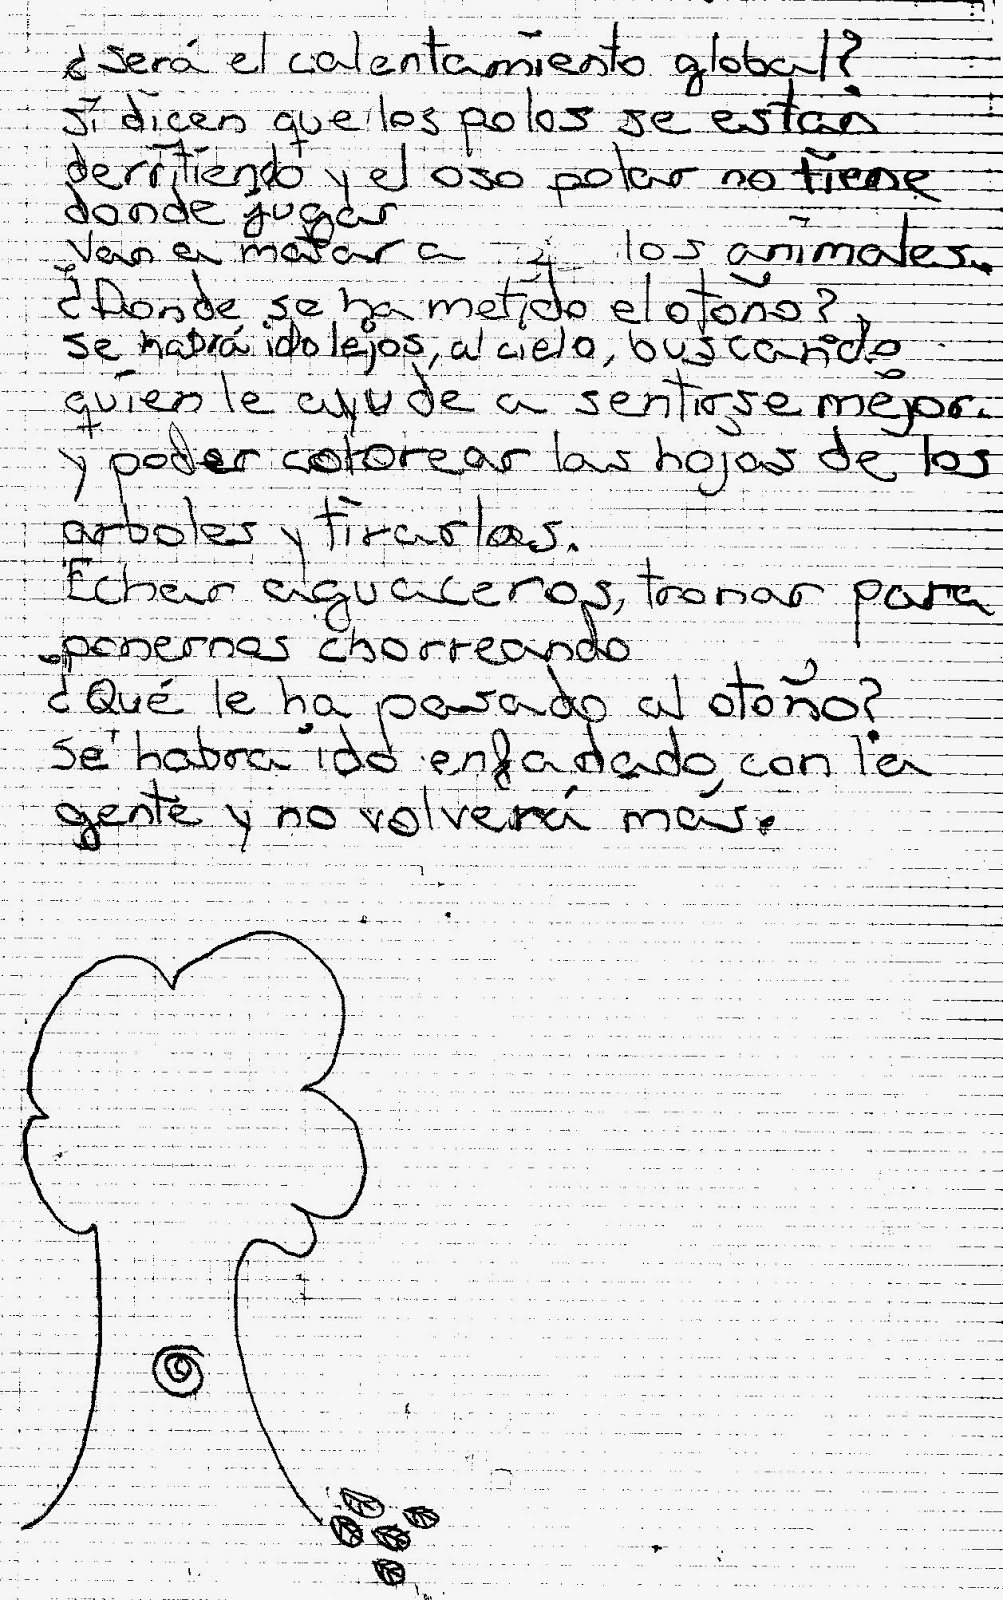 ¿Será el calentamiento global?
Si dicen que los polos se están
derritiendo y el oso polar no tiene
donde jugar
Van a matar a los animales.
¿Donde se ha metido el otoño?
se habrá ido lejos, al cielo, buscando
quien le ayude a sentirse mejor.
y poder colorear las hojas de los
arboles y tirarlas.
Echar aguaceros, tronar para
ponernos chorreando
¿Qué le ha pasado al otoño?
Se habra ido enfadado con la
gente y no volverá más.